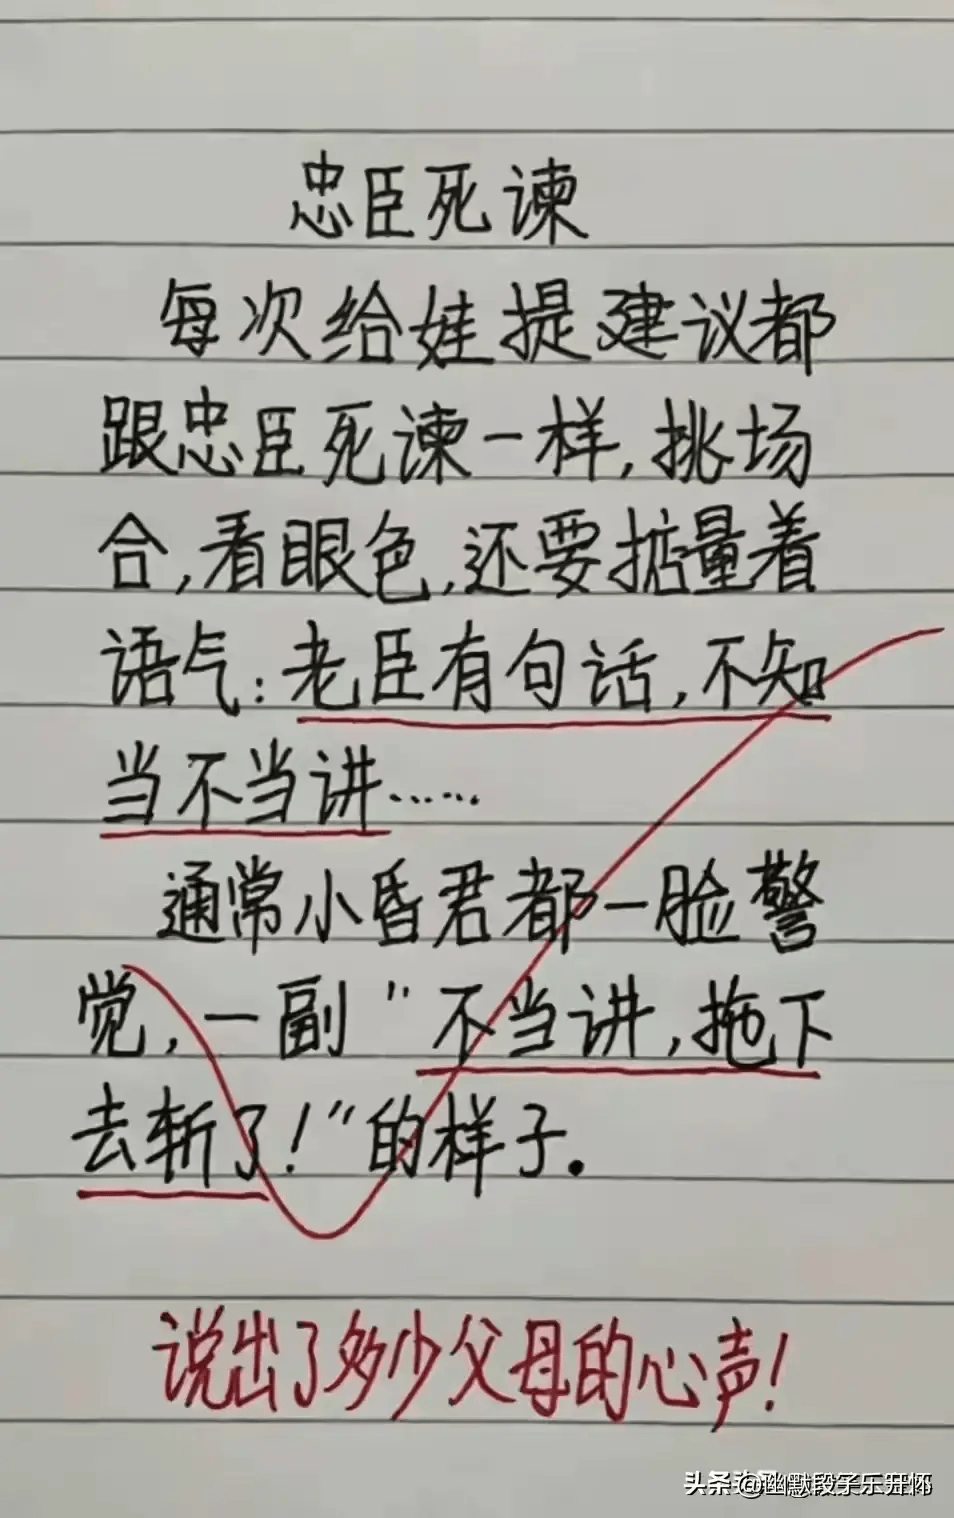 忠臣死谏
每次给娃提建议都
跟忠臣死谏一样,挑场
合,看眼色,还要掂量着
语气:老臣有句话,不知
当不当讲……
通常小昏君都一脸警
觉,一副"不当讲,拖下
去斩了!"的样子.
说出了多少父母的心声!
头条 @幽默段子乐开怀